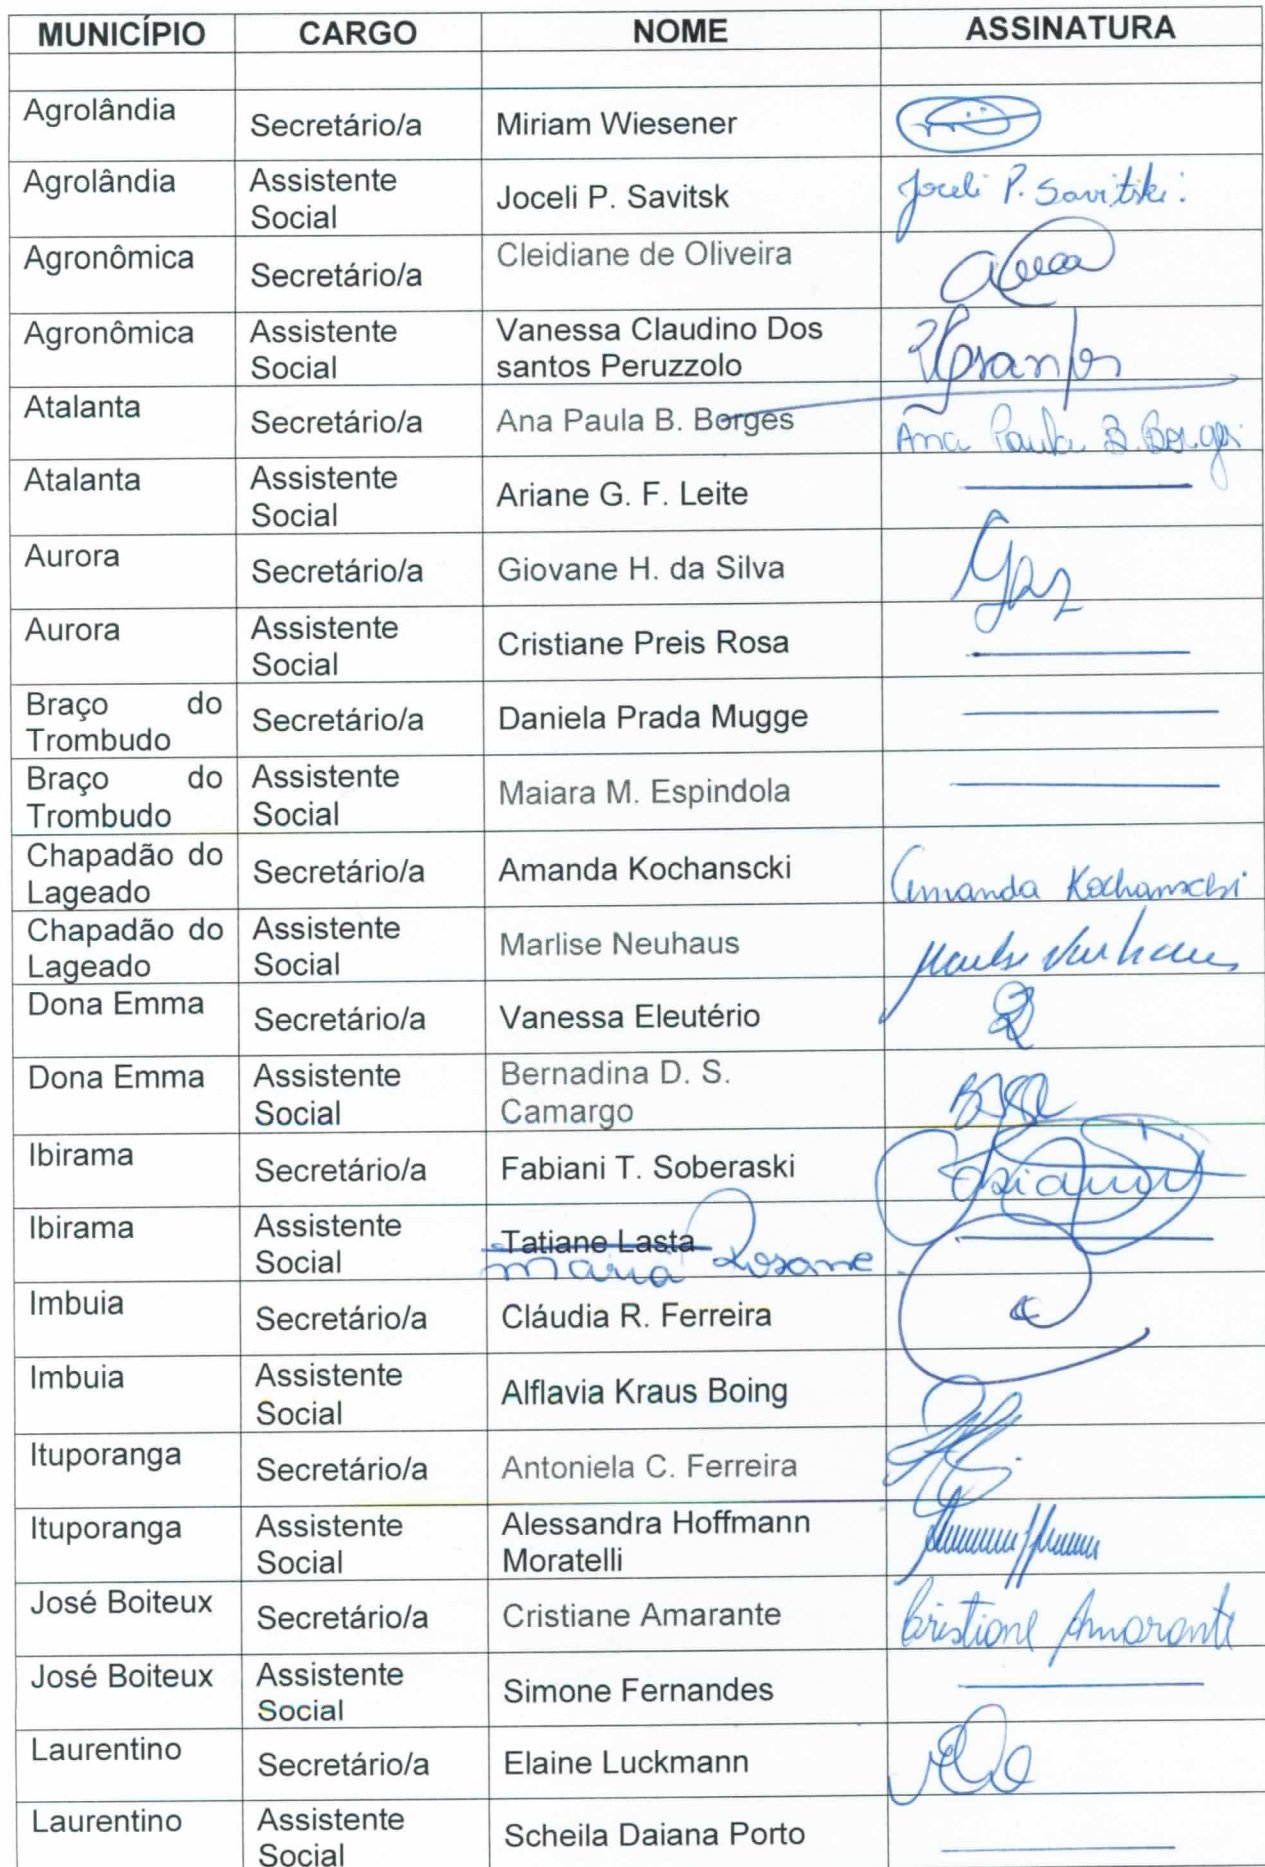 MUNICÍPIO CARGO NOME ASSINATURA
Agrolândia Secretário/a Miriam Wiesener
Agrolândia Assistente Social Joceli P. Savitsk Joceli P. Savitski.
Agronômica Secretário/a Cleidiane de Oliveira
Agronômica Assistente Social Vanessa Claudino Dos santos Peruzzolo
Atalanta Secretário/a Ana Paula B. Borges Ana Paula B. Borges
Atalanta Assistente Social Ariane G. F. Leite
Aurora Secretário/a Giovane H. da Silva
Aurora Assistente Social Cristiane Preis Rosa
Braço do Trombudo Secretário/a Daniela Prada Mugge
Braço do Trombudo Assistente Social Maiara M. Espindola
Chapadão do Lageado Secretário/a Amanda Kochanscki Amanda Kochanscki
Chapadão do Lageado Assistente Social Marlise Neuhaus Marlise Neuhaus
Dona Emma Secretário/a Vanessa Eleutério
Dona Emma Assistente Social Bernadina D. S. Camargo
Ibirama Secretário/a Fabiani T. Soberaski
Ibirama Assistente Social Tatiane Lasta
Maria Rosane
Imbuia Secretário/a Cláudia R. Ferreira
Imbuia Assistente Social Alflavia Kraus Boing
Ituporanga Secretário/a Antoniela C. Ferreira
Ituporanga Assistente Social Alessandra Hoffmann Moratelli
José Boiteux Secretário/a Cristiane Amarante Cristiane Amarante
José Boiteux Assistente Social Simone Fernandes
Laurentino Secretário/a Elaine Luckmann
Laurentino Assistente Social Scheila Daiana Porto